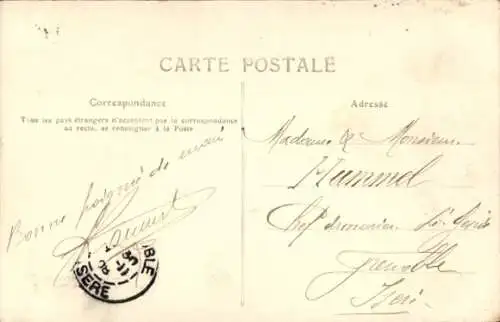 CARTE POSTALE
Correspondance
Tous les pays étrangers n'acceptent pas la correspondance
au recto, se renseigner à la Poste
Bonne poignée de main
Adresse
Madame & Monsieur
Hummel
Chef
Grenoble
Isère
BLE
ISERE